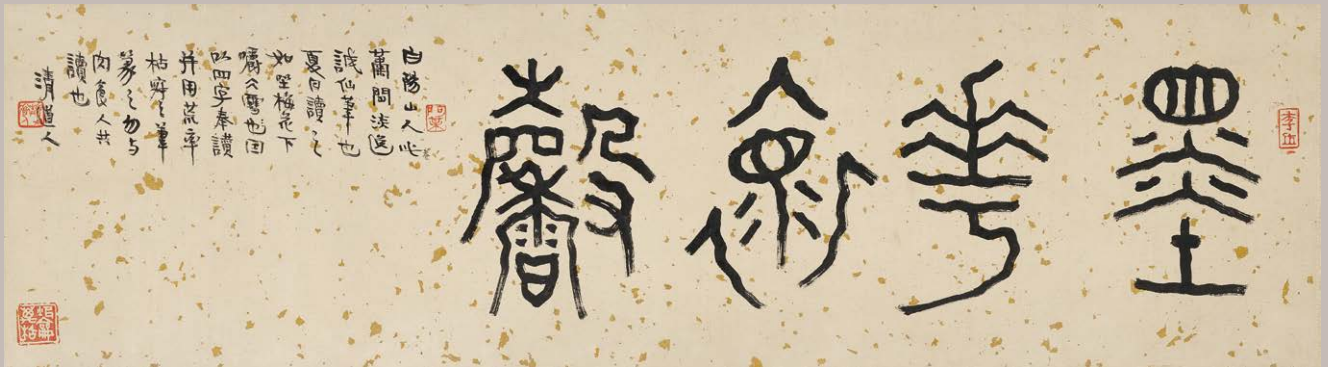 墨華馨
白陽山人此卷
蕭閒淡逸
誠仙筆也
夏日讀之
如坐梅花下
嚼仌雪也因
以四字奉讚
并用荒率
枯窘之筆
篆之勿与
肉食人共
讀也
清道人